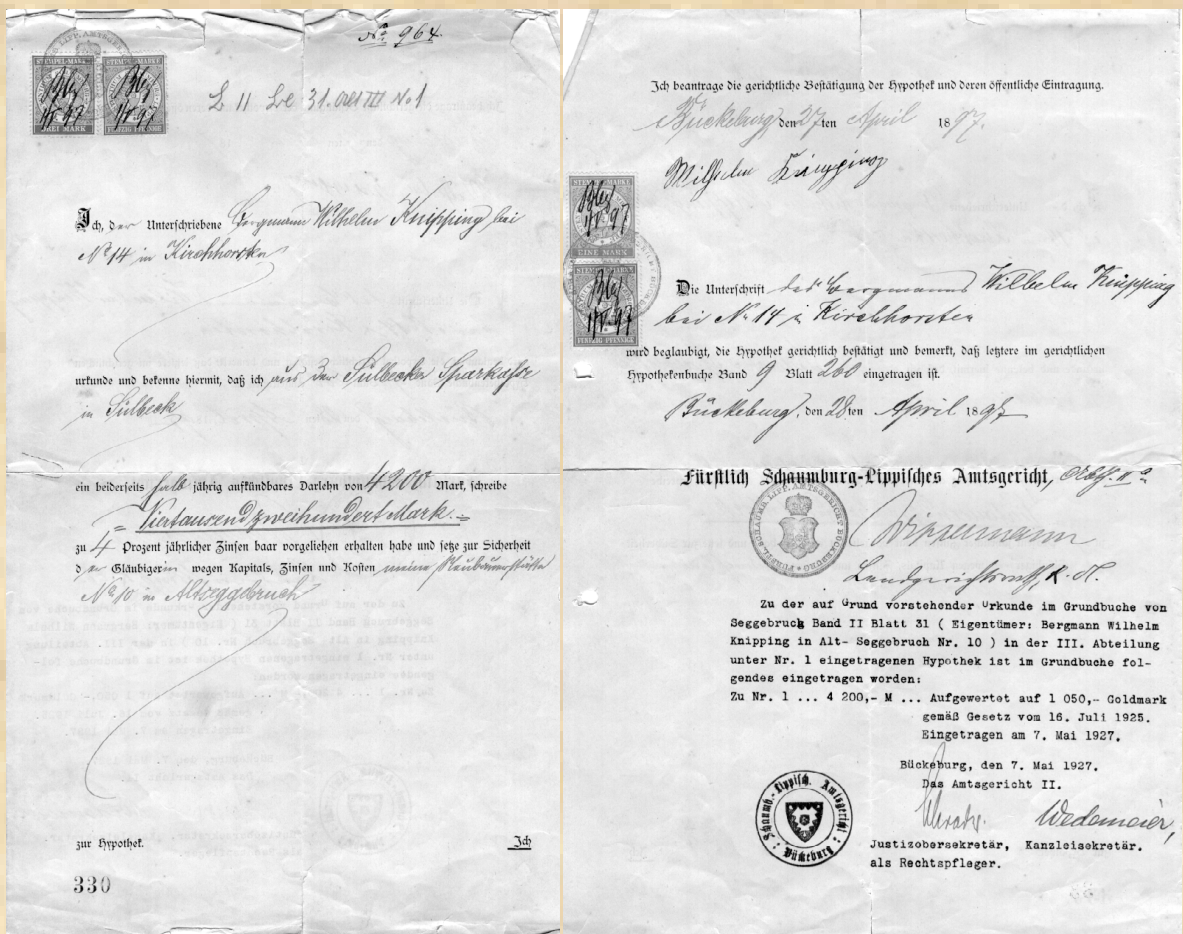 No 964.
STEMPEL-MARKE STEMPEL-MARKE
1/V. 97 1/V. 97
DREI MARK FÜNFZIG PFENNIGE
31. Abt III No 1
Ich, der Unterschriebene Bergmann Wilhelm Knipping bei
No 14 in Kirchhorsten
urkunde und bekenne hiermit, daß ich aus der Sülbecker Sparkasse
in Sülbeck
ein beiderseits halb jährig aufkündbares Darlehn von 4200 Mark, schreibe
Viertausendzweihundert Mark.
zu 4 Prozent jährlicher Zinsen baar vorgeliehen erhalten habe und setze zur Sicherheit
d er Gläubigerin wegen Kapitals, Zinsen und Kosten meine Neubauerstätte
No 10 in Altseggebruch
zur Hypothek.
Ich
330
Ich beantrage die gerichtliche Bestätigung der Hypothek und deren öffentliche Eintragung.
Bückeburg den 27ten April 1897.
Wilhelm Knipping
STEMPEL-MARKE
1/V. 97
EINE MARK
STEMPEL-MARKE
1/V. 97
FÜNFZIG PFENNIGE
Die Unterschrift des Bergmanns Wilhelm Knipping
bei No 14 in Kirchhorsten
wird beglaubigt, die Hypothek gerichtlich bestätigt und bemerkt, daß letztere im gerichtlichen
Hypothekenbuche Band 9 Blatt 260 eingetragen ist.
Bückeburg, den 28ten April 1897
Fürstlich Schaumburg-Lippisches Amtsgericht, Abth. II a
FÜRSTL. SCHAUMB. LIPP. AMTSGERICHT BÜCKEBURG
Wippermann
Zu der auf Grund vorstehender Urkunde im Grundbuche von
Seggebruch Band II Blatt 31 ( Eigentümer: Bergmann Wilhelm
Knipping in Alt- Seggebruch Nr. 10 ) in der III. Abteilung
unter Nr. 1 eingetragenen Hypothek ist im Grundbuche fol-
gendes eingetragen worden:
Zu Nr. 1 ... 4 200,- M ... Aufgewertet auf 1 050,- Goldmark
gemäß Gesetz vom 16. Juli 1925.
Eingetragen am 7. Mai 1927.
Bückeburg, den 7. Mai 1927.
Das Amtsgericht II.
Schaumb.-Lippisch. Amtsgericht Bückeburg
Wedemeier,
Justizobersekretär, Kanzleisekretär.
als Rechtspfleger.